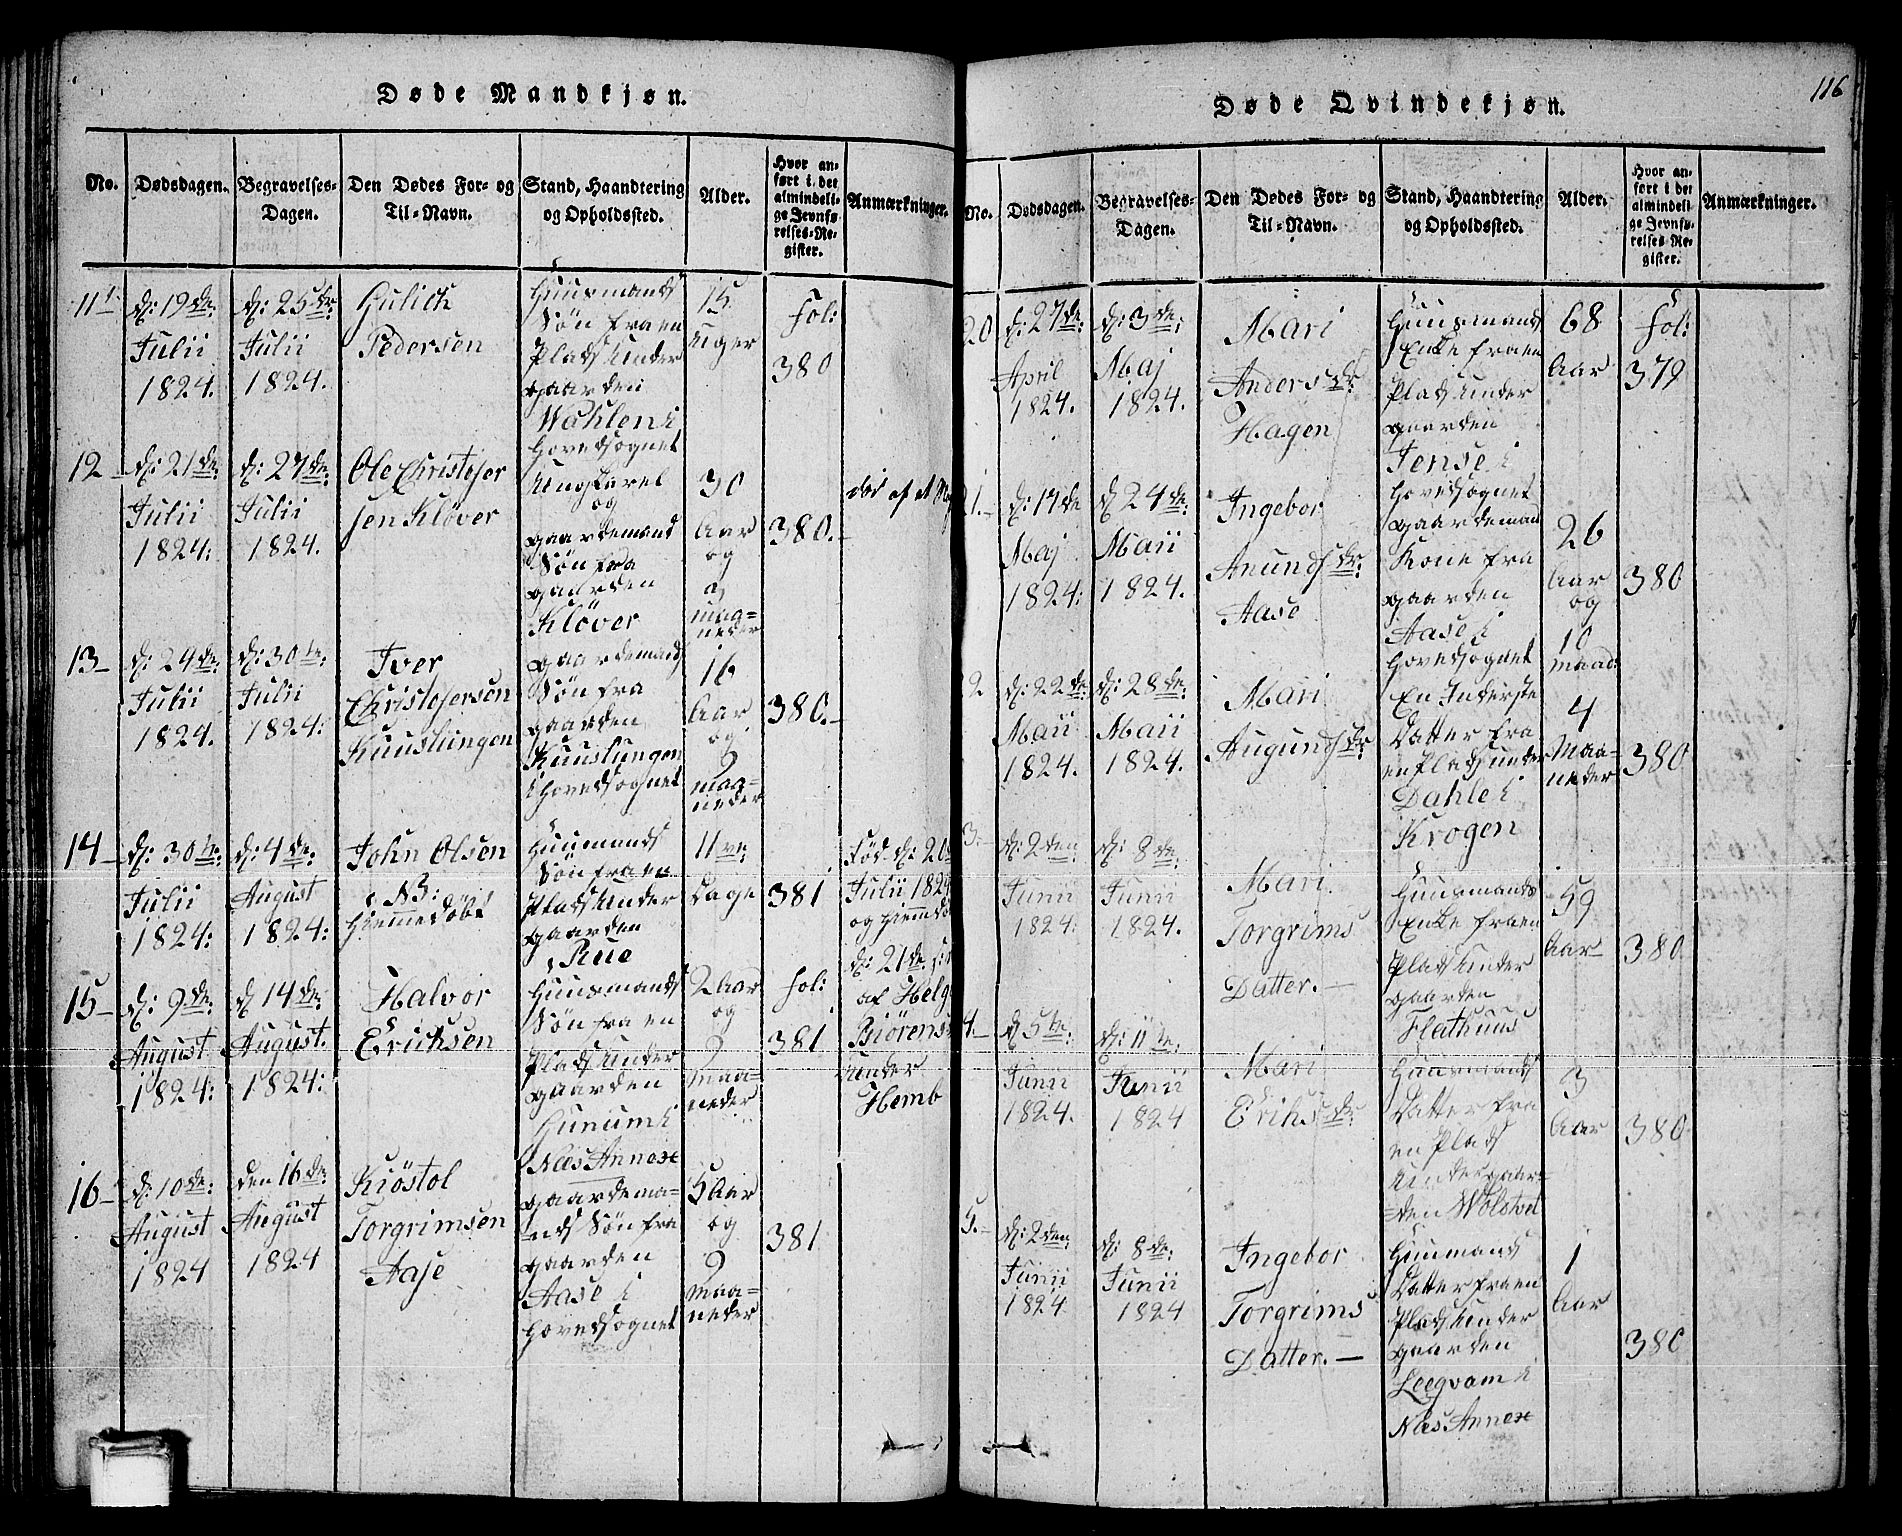 Døde Mandkjøn.
No. Dødsdagen. Begravelses-Dagen. Den Dødes For- og Til-Navn. Stand, Haandtering og Opholdssted. Alder. Hvor anført i det almindelige Jevnførelses-Register. Anmærkninger.
11te
d: 19de:
Julii
1824.
d: 25de
Julii
1824.
Gulich
Pedersen
Huusmands
Søn fra en
Plads under
gaarden
Wahlen i
Hovedsognet
15
uger
fol:
380
12
d: 21de:
Julii
1824:
d: 27de:
Julii
1824.
Ole Christofer
sen Kløver
Ungkarel
og
gaardemand
Søn fra
gaarden
Kløver
30
Aar
og
maa-
neder
380.
død af et
13
d: 24de:
Julii
1824.
d: 30te:
Julii
1824:
Iver
Christofersen
Kuuslungen
gaardemands
Søn fra
gaarden
Kuuslungen
i Hovedsognet
16
Aar
og
9
maa-
neder
380.
14
d: 30te:
Julii
1824:
d: 4de:
August
1824:
John Olsen
NB:
Hiemmedøbt
Huusmands
Søn fra en
Plads under
gaarden
Rue
11ve
Dage
381
Fød d: 20
Julii 1824
og hiemdø
d: 21de
af Helg
Biørens
under
Hemb
15
d: 9de:
August
1824:
d 14de:
August.
1824:
Halvor
Erichsen
Huusmands
Søn fra en
Plads under
gaarden
Gunum i
Næs Annex
2 Aar
og
9
maa-
neder
fol:
381
16
d: 10de:
August
1824
den 16de
August
1824
Kiøstol
Torgrimsen
Aase
gaardema-
nds Søn fra
gaarden
Aase i
Hovedsognet
5 Aar
og
9
maa-
neder
381
Døde Qvindekjøn.
116
No. Dødsdagen. Begravelses-Dagen. Den Dødes For- og Til-Navn. Stand, Haandtering og Opholdssted. Alder. Hvor anført i det almindelige Jevnførelses-Register. Anmærkninger.
20
d: 27de:
April
1824.
d: 3de:
Maj
1824.
Mari
Anders dr
Hagen
Huusmands
Enke fra en
Plads under
gaarden
Jense i
Hovedsognet
68
Aar
fol:
379
1.
d: 17de
Maj
1824:
d 24de:
Maii
1824.
Ingebor
Anunds dr:
Aase
gaardemand
Kone fra
gaarden
Aase i
Hovedsognet
26
Aar
og
10
maad:
380
2
d: 22de
Maii
1824.
d: 28de:
Maii
1824.
Mari
Augunds dr
En Inderste
Datter fra
en Plads under
Dahle i
Krogen
4
Maa-
neder
380
3.
d: 2den
Junii
1824:
d: 8de:
Junii
1824.
Mari
Torgrims
Datter.—
Huusmands
Enke fra en
Plads under
gaarden
Flathuus
59
Aar
380
4.
d 5te:
Junii
1824.
d: 11te:
Junii
1824
Mari
Erihs dr:
Huusmands
Datter fra
en Plads
under gaar-
den Wolstvet
3
Aar
380
5.
d: 2den
Junii
1824
d: 8de:
Junii
1824
Ingebor
Torgrims
Datter.—
Huusmands
Datter fra en
Plads under
gaarden
Leegvam i
Næs Annex
1
Aar
380